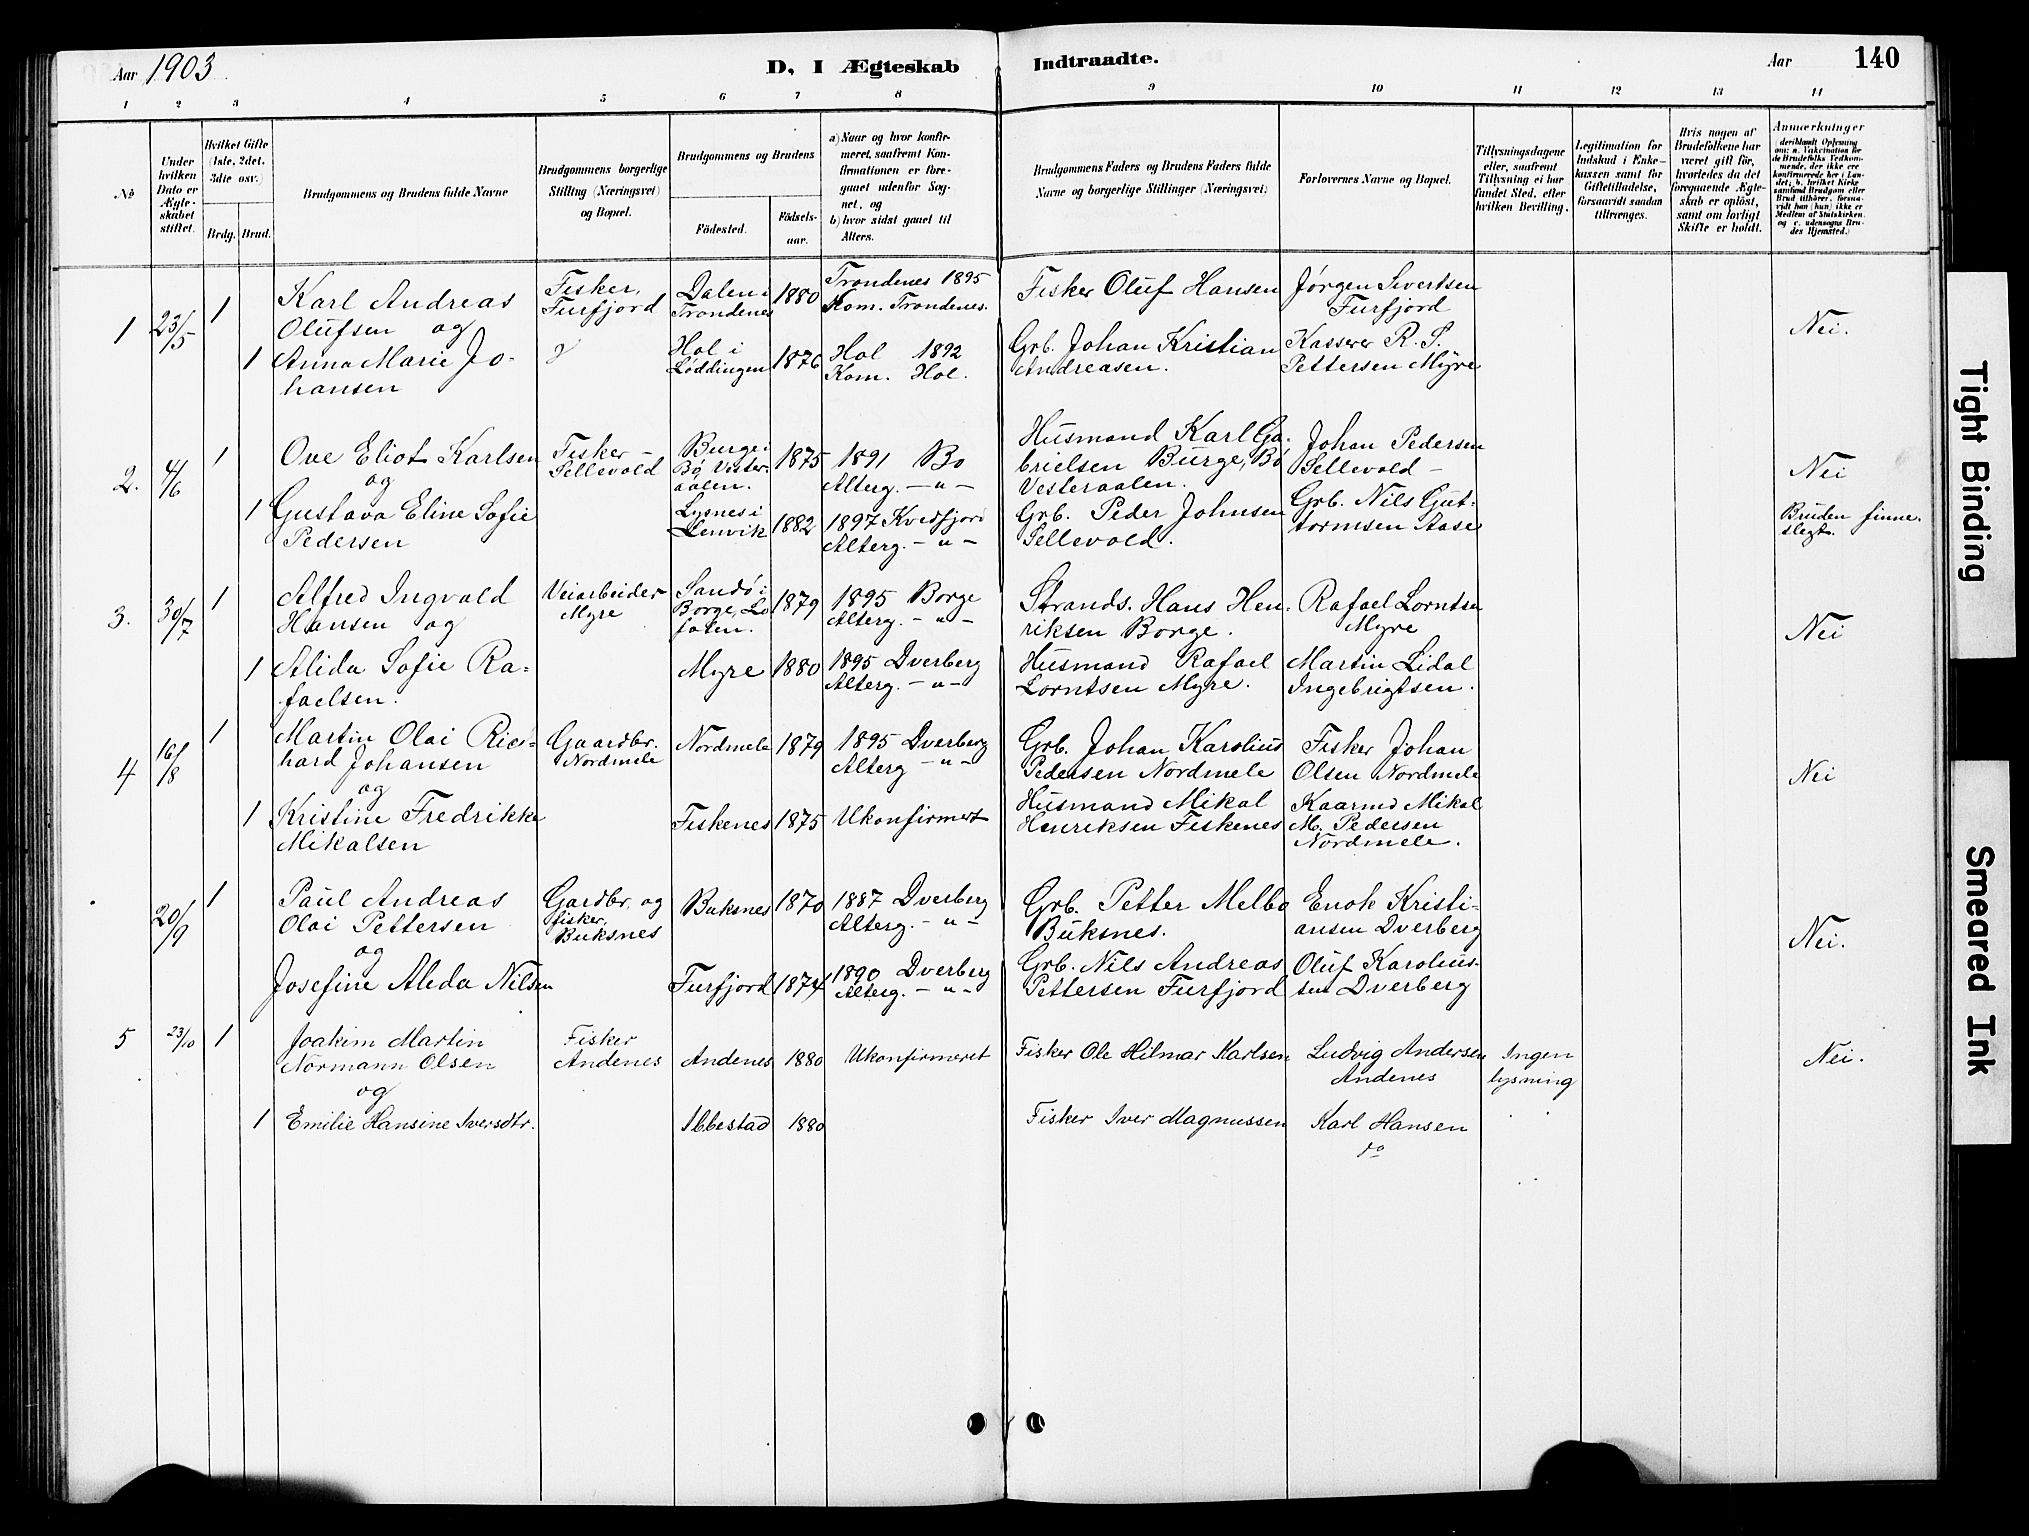 Aar 1903
D, I Ægteskab Indtraadte.
Aar 140
1 2 3 4 5 6 7 8 9 10 11 12 13 14
No
Under hvilken Dato er Ægteskabet stiftet.
Hvilket Gifte (1ste, 2det, 3die osv.)
Brdg. Brud.
Brudgommens og Brudens fulde Navne
Brudgommens borgerlige Stilling (Næringsvei) og Bopæl.
Brudgommens og Brudens
Födested.
Födselsaar.
a) Naar og hvor konfirmeret, saafremt Konfirmationen er foregaaet udenfor Sognet, og
b) hvor sidst gaaet til Alters.
Brudgommens Faders og Brudens Faders fulde Navne og borgerlige Stillinger (Næringsvei)
Forlovernes Navne og Bopæl.
Tillysningsdagene eller, saafremt Tillysning ei har fundet Sted, efter hvilken Bevilling.
Legitimation for Indskud i Enkekassen samt for Giftetilladelse, forsaavidt saadan tiltrænges.
Hvis nogen af Brudefolkene har været gift før, hvorledes da det foregaaende Ægteskab er oplöst, samt om lovligt Skifte er holdt.
Anmærkninger (deriblandt Oplysning om: a. Vakcination for de Brudefolks Vedkommende, der ikke ere konfirmerede her i Landet; b. hvilket Kirkesamfund Brudgom eller Brud tilhører, forsaavidt han (hun) ikke er Medlem af Statskirken, og c. udensogns Brudes Hjemsted.)
1 23/5 1
Karl Andreas
Olufsen og
Fisker,
Furfjord
Dalen i
Trondenes
1880
Trondenes 1895
Kom. Trondenes.
Fisker Oluf Hansen
Jørgen Sivertsen
Furfjord
Nei.
1
Anna Marie Jo-
hansen
Hol i
Løddingen
1876
Hol 1892
Kom. Hol.
Grb. Johan Kristian
Andreasen.
Kasserer R. S.
Pettersen Myre
2. 4/6 1
Ove Eliot Karlsen
og
Fisker -
Sellevold
Burge i
Bø Vester-
aalen.
1875
1891 Bø
Alterg. - " -
Husmand Karl Ga-
brielsen Burge, Bø
Vesteraalen.
Johan Pedersen
Sellevold -
Nei
1
Gustava Eline Sofie
Pedersen
Lysnes i
Lenvik
1882
1897 Kvedfjord
Alterg. - " -
Grb. Peder Johnsen
Sellevold.
Grb. Nils Gut-
tormsen Aase
Bruden finne-
slegt.
3. 30/7 1
Alfred Ingvald
Hansen og
Veiarbeider
Myre
Sandø i
Borge, Lo
foten.
1879
1895 Borge
Alterg. - " -
Strands. Hans Hen-
riksen Borge.
Rafael Lorntsen
Myre
Nei
1
Alida Sofie Ra-
faelsen.
Myre
1880
1895 Dverberg
Alterg. - " -
Husmand Rafael
Lorntsen Myre.
Martin Lidal
Ingebrigtsen.
4 16/8 1
Martin Olai Ric-
hard Johansen
og
Gaardbr.
Nordmele
Nordmele
1879
1895 Dverberg
Alterg - " -
Grb. Johan Karolius
Pedersen Nordmele
Fisker Johan
Olsen Nordmele
Nei
1
Kristine Fredrikke
Mikalsen
Fiskenes
1875
Ukonfirmert
Husmand Mikal
Henriksen Fiskenes
Kaarmd Mikal
M. Pedersen
Nordmele.
20/9 1
Paul Andreas
Olai Pettersen
og
Gardbr. og
fisker,
Buksnes
Buksnes
1870
1887 Dverberg
Alterg. - " -
Grb. Petter Melbo
Buksnes.
Enok Kristi-
ansen Dverberg
Nei.
Josefine Aleda Nilsen
Furfjord
1874
1890 Dverberg
Alterg. - " -
Grb. Nils Andreas
Pettersen Furfjord
Oluf Karolius-
sen Dverberg
5 23/10 1
Joakim Martin
Normann Olsen
og
Fisker
Andenes
Andenes
1880
Ukonfirmeret
Fisker Ole Hilmar Karlsen
Ludvig Andersen
Andenes
Ingen
lysning
Nei.
1
Emilie Hansine Iversdtr.
Ibbestad
1880
Fisker Iver Magnussen
Karl Hansen
do
Tight Binding
Smeared Ink